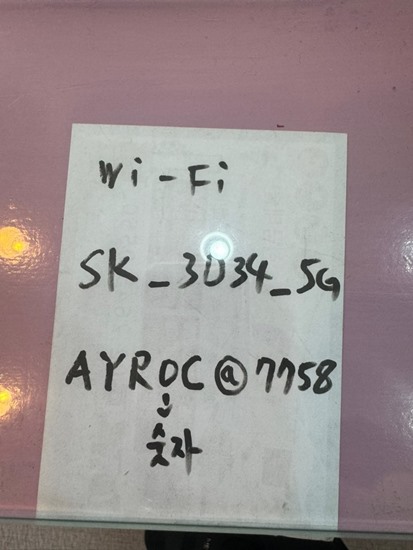 Wi-Fi
SK_3D34_5G
AYR0C@7758
↓
숫자